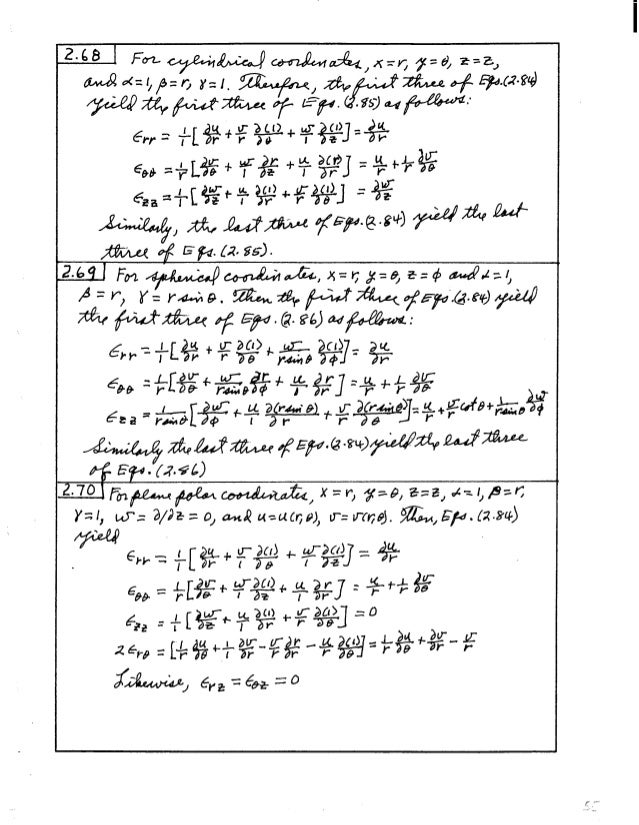 2.68 For cylindrical coordinates, x=r, y=θ, z=z,
and α=1, β=r, γ=1. Therefore, the first three of Eqs.(2.84)
yield the first three of Eqs. (2.85) as follows:
ϵrr = 1/1 [∂u/∂r + v/r ∂(1)/∂θ + w/1 ∂(1)/∂z] = ∂u/∂r
ϵθθ = 1/r [∂v/∂θ + w/1 ∂r/∂z + u/1 ∂(r)/∂r] = u/r + 1/r ∂v/∂θ
ϵzz = 1/1 [∂w/∂z + u/1 ∂(1)/∂r + v/r ∂(1)/∂θ] = ∂w/∂z
Similarly, the last three of Eqs.(2.84) yield the last
three of Eqs. (2.85).
2.69 For spherical coordinates, x=r, y=θ, z=ϕ and α=1,
β=r, γ=r sinθ. Then the first three of Eqs.(2.84) yield
the first three of Eqs. (2.86) as follows:
ϵrr = 1/1 [∂u/∂r + v/r ∂(1)/∂θ + w/r sinθ ∂(1)/∂ϕ] = ∂u/∂r
ϵθθ = 1/r [∂v/∂θ + w/r sinθ ∂r/∂ϕ + u/1 ∂r/∂r] = u/r + 1/r ∂v/∂θ
ϵzz = 1/r sinθ [∂w/∂ϕ + u/1 ∂(r sinθ)/∂r + v/r ∂(r sinθ)/∂θ] = u/r + v/r cotθ + 1/r sinθ ∂w/∂ϕ
Similarly the last three of Eqs.(2.84) yield the last three
of Eqs. (2.86)
2.70 For plane polar coordinates, x=r, y=θ, z=z, α=1, β=r,
γ=1, w = ∂/∂z = 0, and u=u(r,θ), v=v(r,θ). Then, Eqs. (2.84)
yield
ϵrr = 1/1 [∂u/∂r + v/r ∂(1)/∂θ + w/1 ∂(1)/∂z] = ∂u/∂r
ϵθθ = 1/r [∂v/∂θ + w/1 ∂(1)/∂z + u/1 ∂r/∂r] = u/r + 1/r ∂v/∂θ
ϵzz = 1/1 [∂w/∂z + u/1 ∂(1)/∂r + v/r ∂(1)/∂θ] = 0
2ϵrθ = [1/r ∂u/∂θ + 1/1 ∂v/∂r - v/r ∂r/∂r - u/r ∂(1)/∂θ] = 1/r ∂u/∂θ + ∂v/∂r - v/r
Likewise, ϵrz = ϵθz = 0